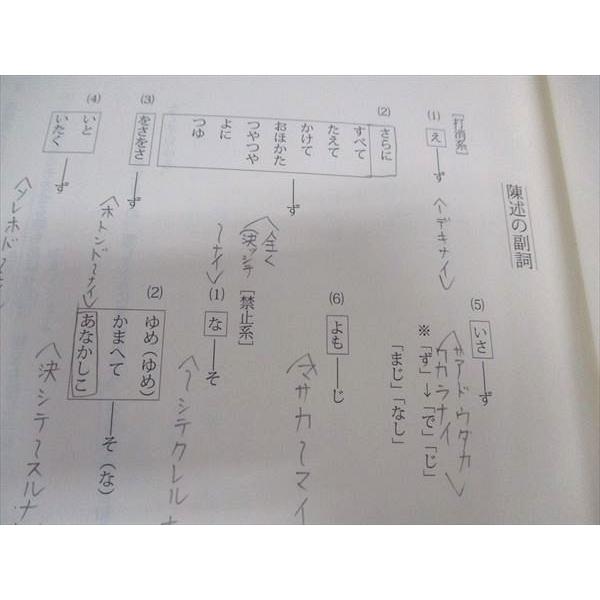 陳述の副詞
[打消系]
(1) え──ず
〈〜デキナイ〉
(2) さらに
すべて
たえて
かけて
おほかた
つやつや
よに
つゆ
──ず
〈全く
決ッシテ
〜ナイ〉
(3) をさをさ──ず
〈ホトンド〜ナイ〉
(4) いと
いたく
──ず
〈ソレホド〜
(5) いさ──ず
〈サアドウダカ
ワカラナイ〉
※「ず」→「で」「じ」
「まじ」「なし」
(6) よも──じ
〈マサカ〜マイ
[禁止系]
(1) な──そ
〈〜シテクレルナ
(2) ゆめ(ゆめ)
かまへて
あなかしこ
──そ(な)
〈決シテ〜スルナ